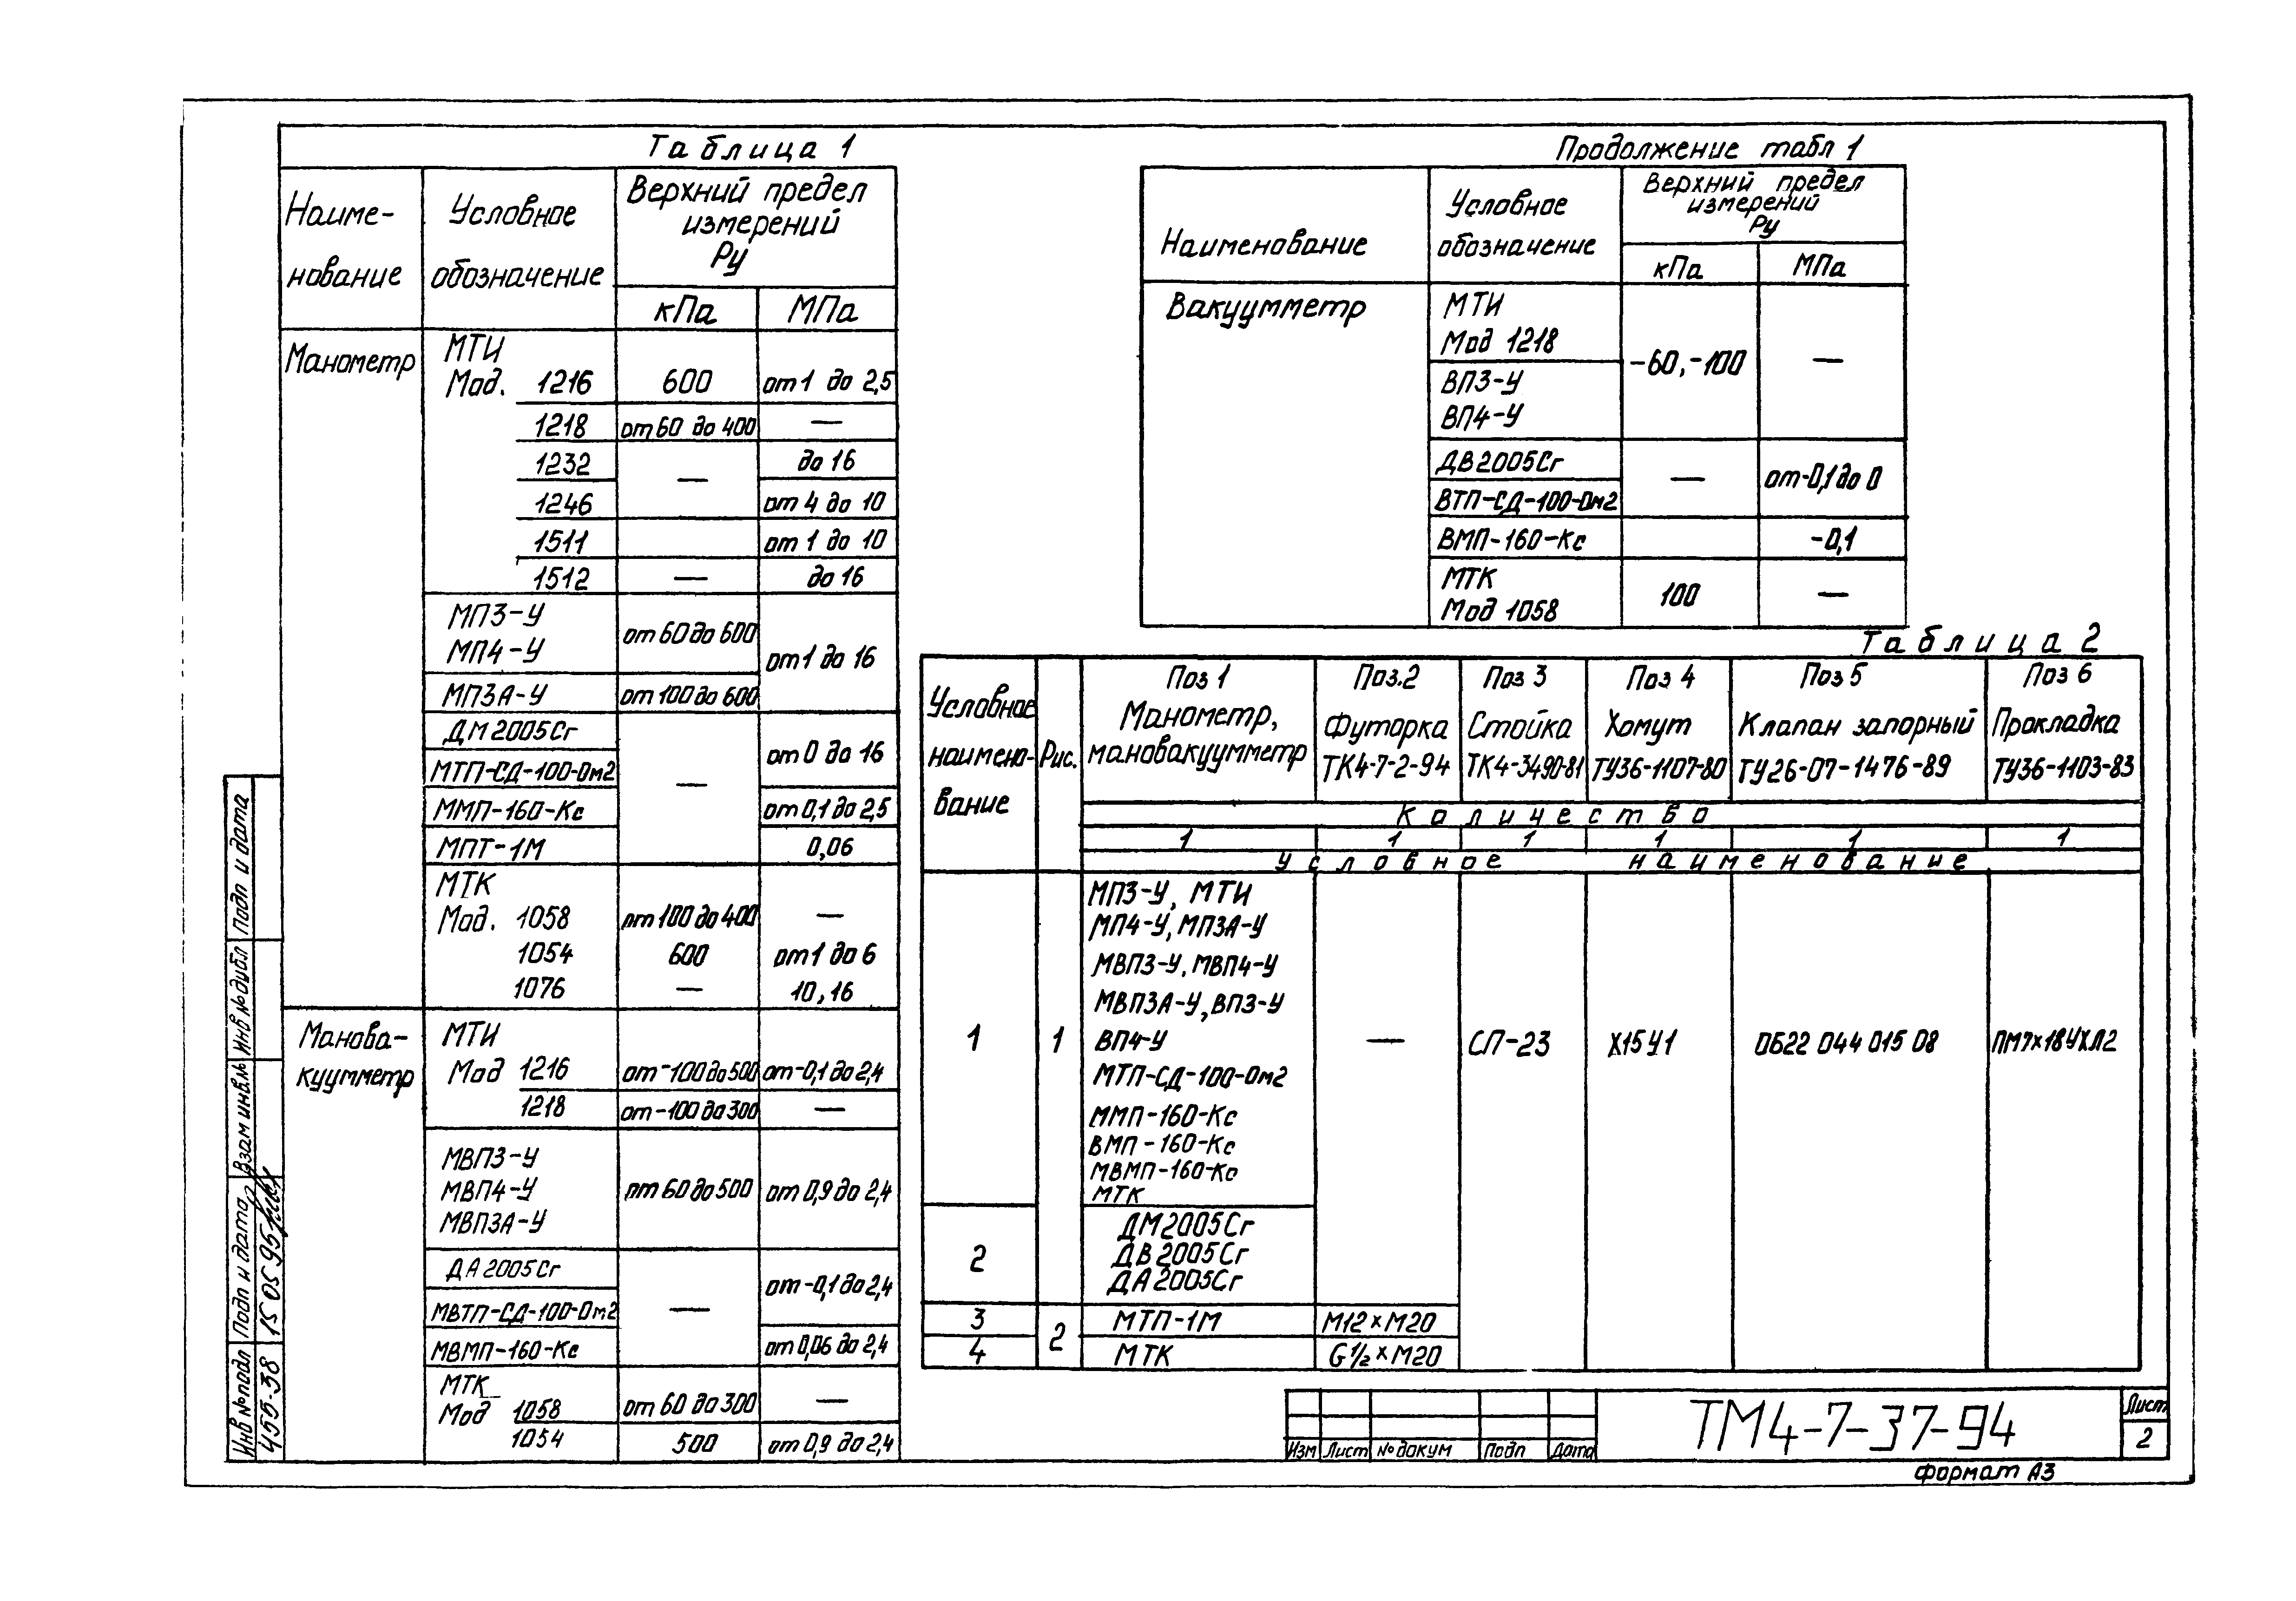 Таблица 1
Наиме-
нование
Условное
обозначение
Верхний предел
измерений
Ру
кПа МПа
Манометр
МТИ
Мод. 1216 600 от 1 до 2,5
1218 от 60 до 400 —
1232 — до 16
1246 от 4 до 10
1511 от 1 до 10
1512 — до 16
МП3-У
МП4-У
от 60 до 600
от 1 до 16
МП3А-У от 100 до 600
ДМ2005Сг
от 0 до 16
МТП-СД-100-Ом2
—
ММП-160-Кс от 0,1 до 2,5
МПТ-1М 0,06
МТК
Мод. 1058 от 100 до 400 —
1054 600 от 1 до 6
1076 — 10, 16
Манова-
куумметр
МТИ
Мод 1216 от -100 до 500 от -0,1 до 2,4
1218 от -100 до 300 —
МВП3-У
МВП4-У от 60 до 500 от 0,9 до 2,4
МВП3А-У
ДА2005Сг
от -0,1 до 2,4
МВТП-СД-100-Ом2 —
МВМП-160-Кс от 0,06 до 2,4
МТК
Мод 1058 от 60 до 300 —
1054 500 от 0,9 до 2,4
Продолжение табл 1
Наименование
Условное
обозначение
Верхний предел
измерений
Ру
кПа МПа
Вакуумметр
МТИ
Мод 1218
-60, -100 —
ВП3-У
ВП4-У
ДВ2005Сг
— от -0,1 до 0
ВТП-СД-100-Ом2
ВМП-160-Кс -0,1
МТК
Мод 1058
100 —
Таблица 2
Условное
наимено-
вание
Рис.
Поз 1
Манометр,
мановакуумметр
Поз.2
Футорка
ТК4-7-2-94
Поз 3
Стойка
ТК4-3490-81
Поз 4
Хомут
ТУ36-1107-80
Поз 5
Клапан запорный
ТУ26-07-1476-89
Поз 6
Прокладка
ТУ36-1103-83
Количество
1 1 1 1 1 1
Условное наименование
МП3-У, МТИ
МП4-У, МП3А-У
МВП3-У, МВП4-У
МВП3А-У, ВП3-У
1 1 ВП4-У — СП-23 Х15У1 ОБ22 044 015 08 ПМ7х18УХЛ2
МТП-СД-100-Ом2
ММП-160-Кс
ВМП-160-Кс
МВМП-160-Кс
МТК
2
ДМ2005Сг
ДВ2005Сг
ДА2005Сг
3 МТП-1М М12×М20
2
4 МТК G½×М20
Изм Лист № докум Подп Дата
ТМ4-7-37-94
Лист
2
Формат А3
Подп и дата
Инв № дубл
Взам инв.№
Подп и дата
15 05 95
Инв № подл
455-38